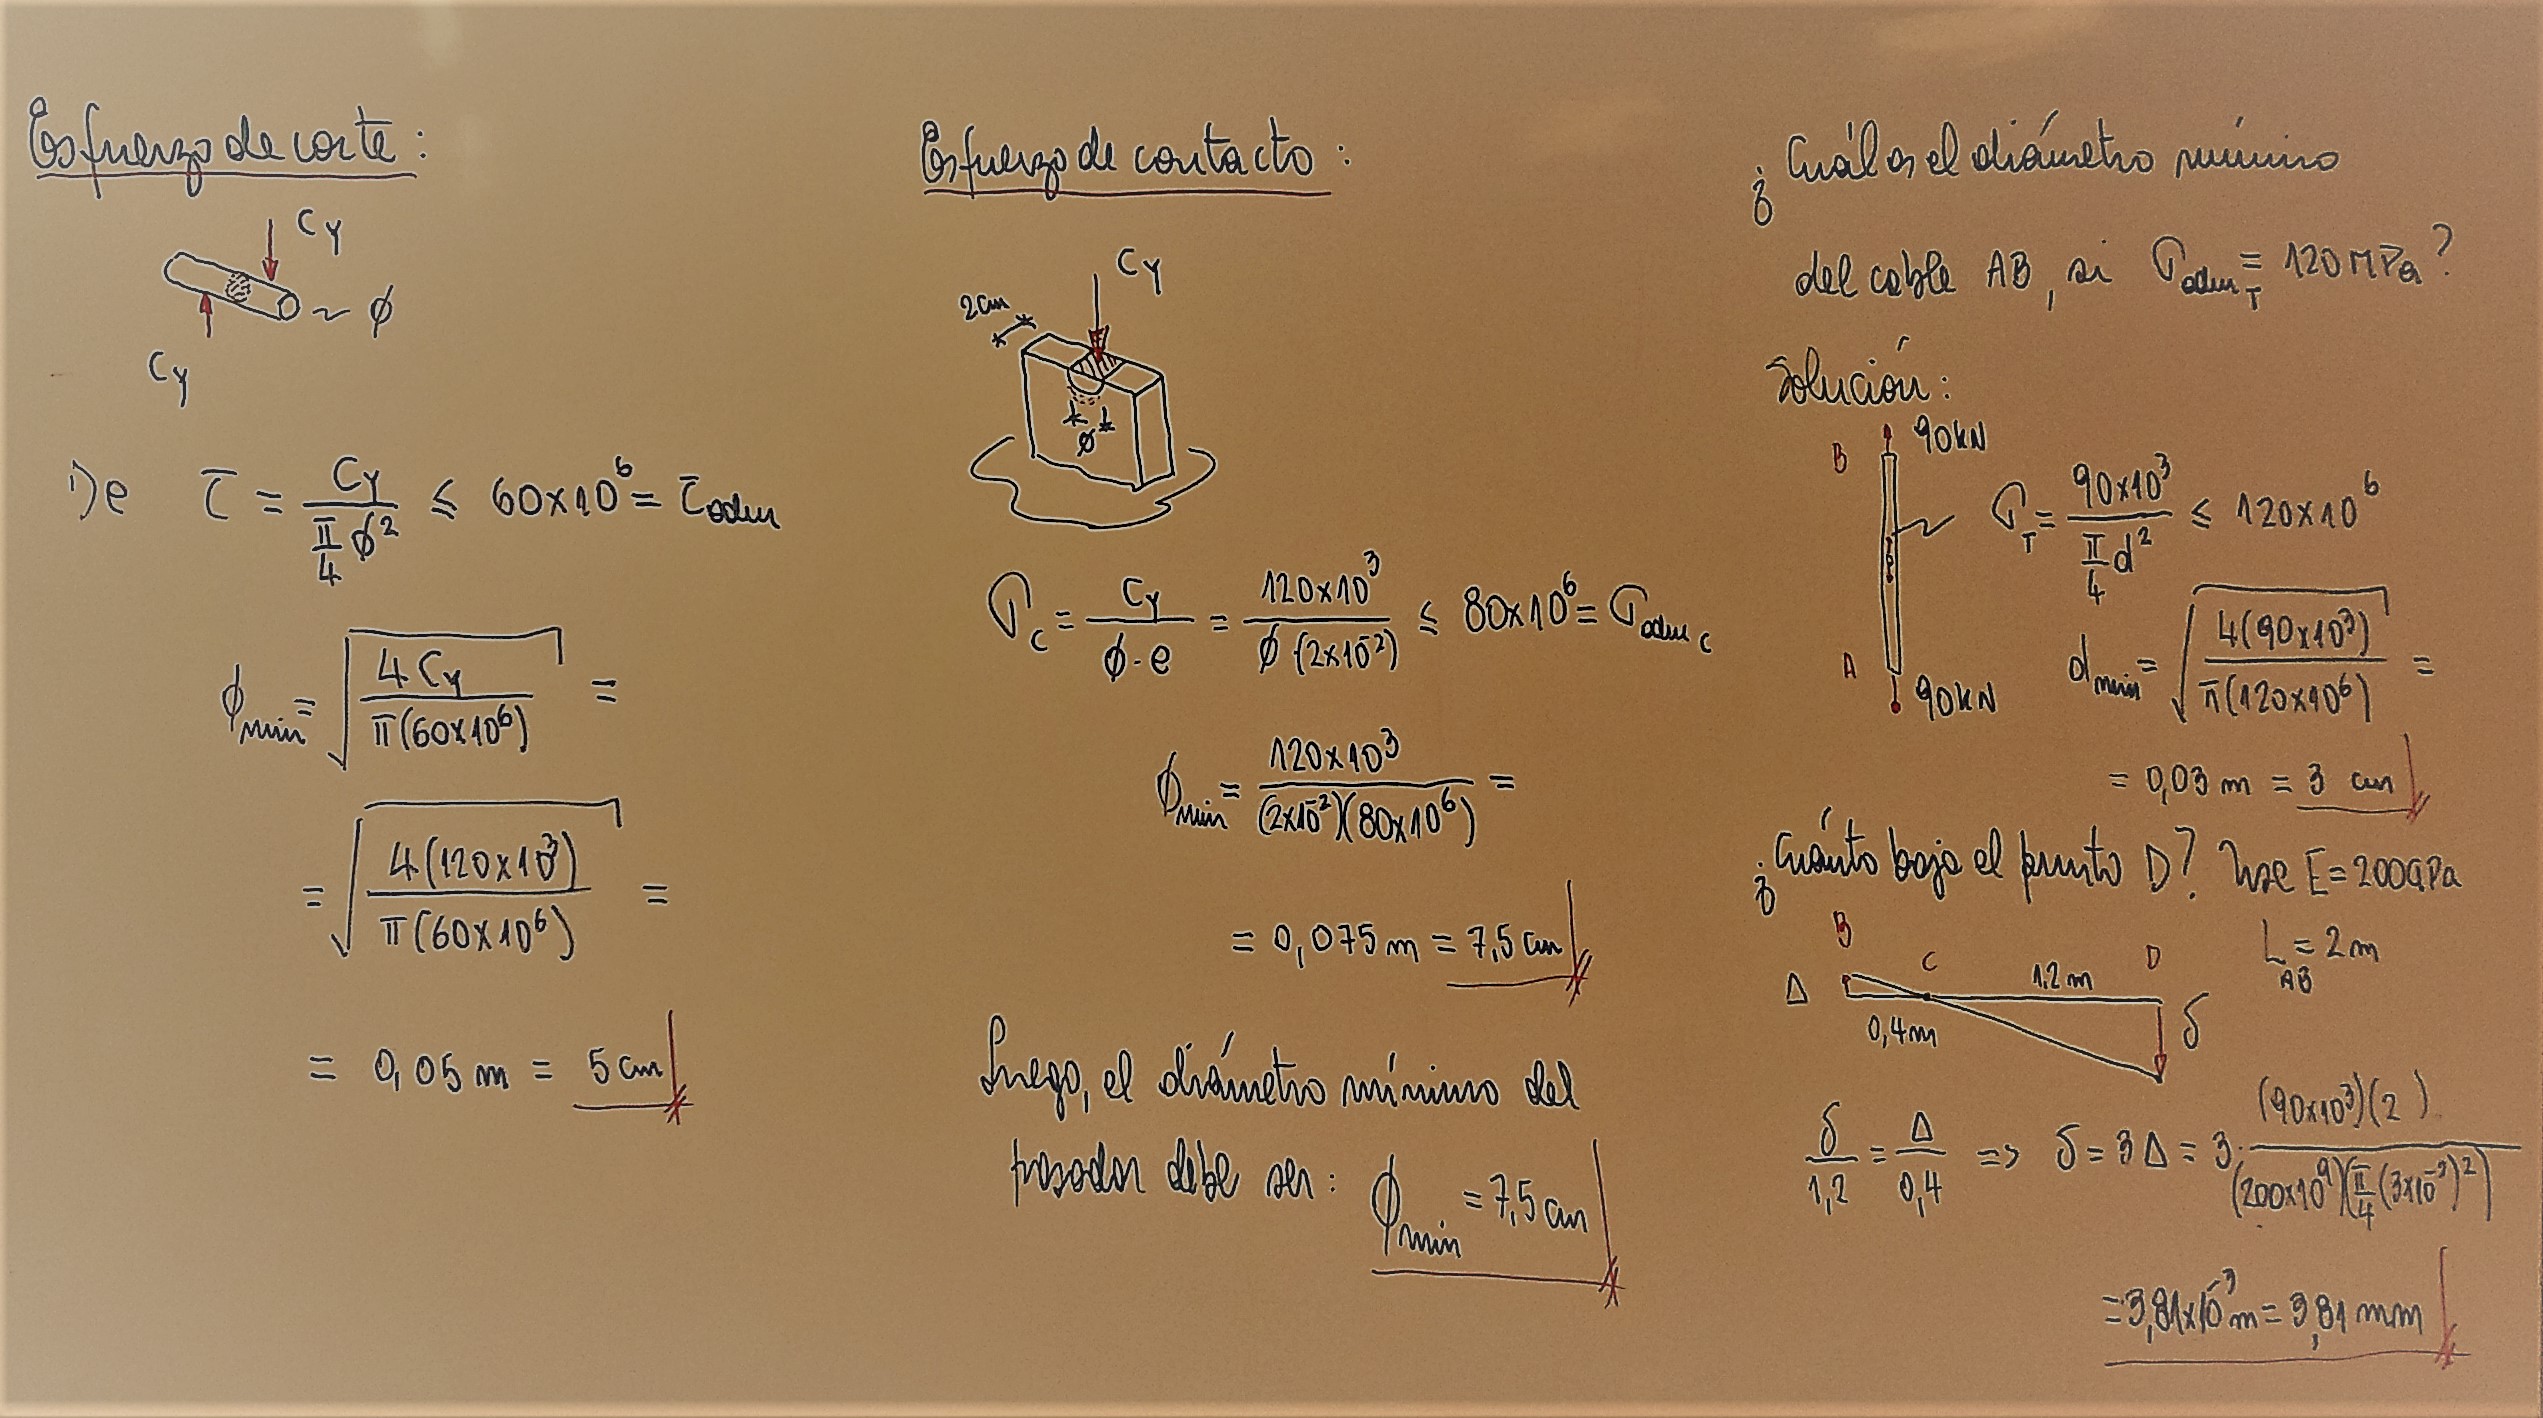 Esfuerzo de corte:
Cy
ϕ
Cy
De τ = Cy / (π/4 ϕ²) ≤ 60x10⁶ = τadm
ϕmin = √(4 Cy / π(60x10⁶)) =
= √(4(120x10³) / π(60x10⁶)) =
= 0,05 m = 5 cm
Esfuerzo de contacto:
Cy
2cm
ϕ
σc = Cy / (ϕ·e) = 120x10³ / (ϕ (2x10⁻²)) ≤ 80x10⁶ = σadm c
ϕmin = 120x10³ / ((2x10⁻²)(80x10⁶)) =
= 0,075 m = 7,5 cm
Luego, el diámetro mínimo del
pasador debe ser: ϕmin = 7,5 cm
¿Cuál es el diámetro mínimo
del cable AB, si σadm T = 120 MPa?
Solución:
B 90kN
σT = 90x10³ / (π/4 d²) ≤ 120x10⁶
A 90kN
dmin = √(4(90x10³) / π(120x10⁶)) =
= 0,03 m = 3 cm
¿Cuánto baja el punto D? Use E = 200GPa
L AB = 2 m
B C D
Δ 0,4m 1,2m δ
δ/1,2 = Δ/0,4 => δ = 3Δ = 3· (90x10³)(2) / ((200x10⁹)(π/4 (3x10⁻²)²))
= 3,81x10⁻³ m = 3,81 mm